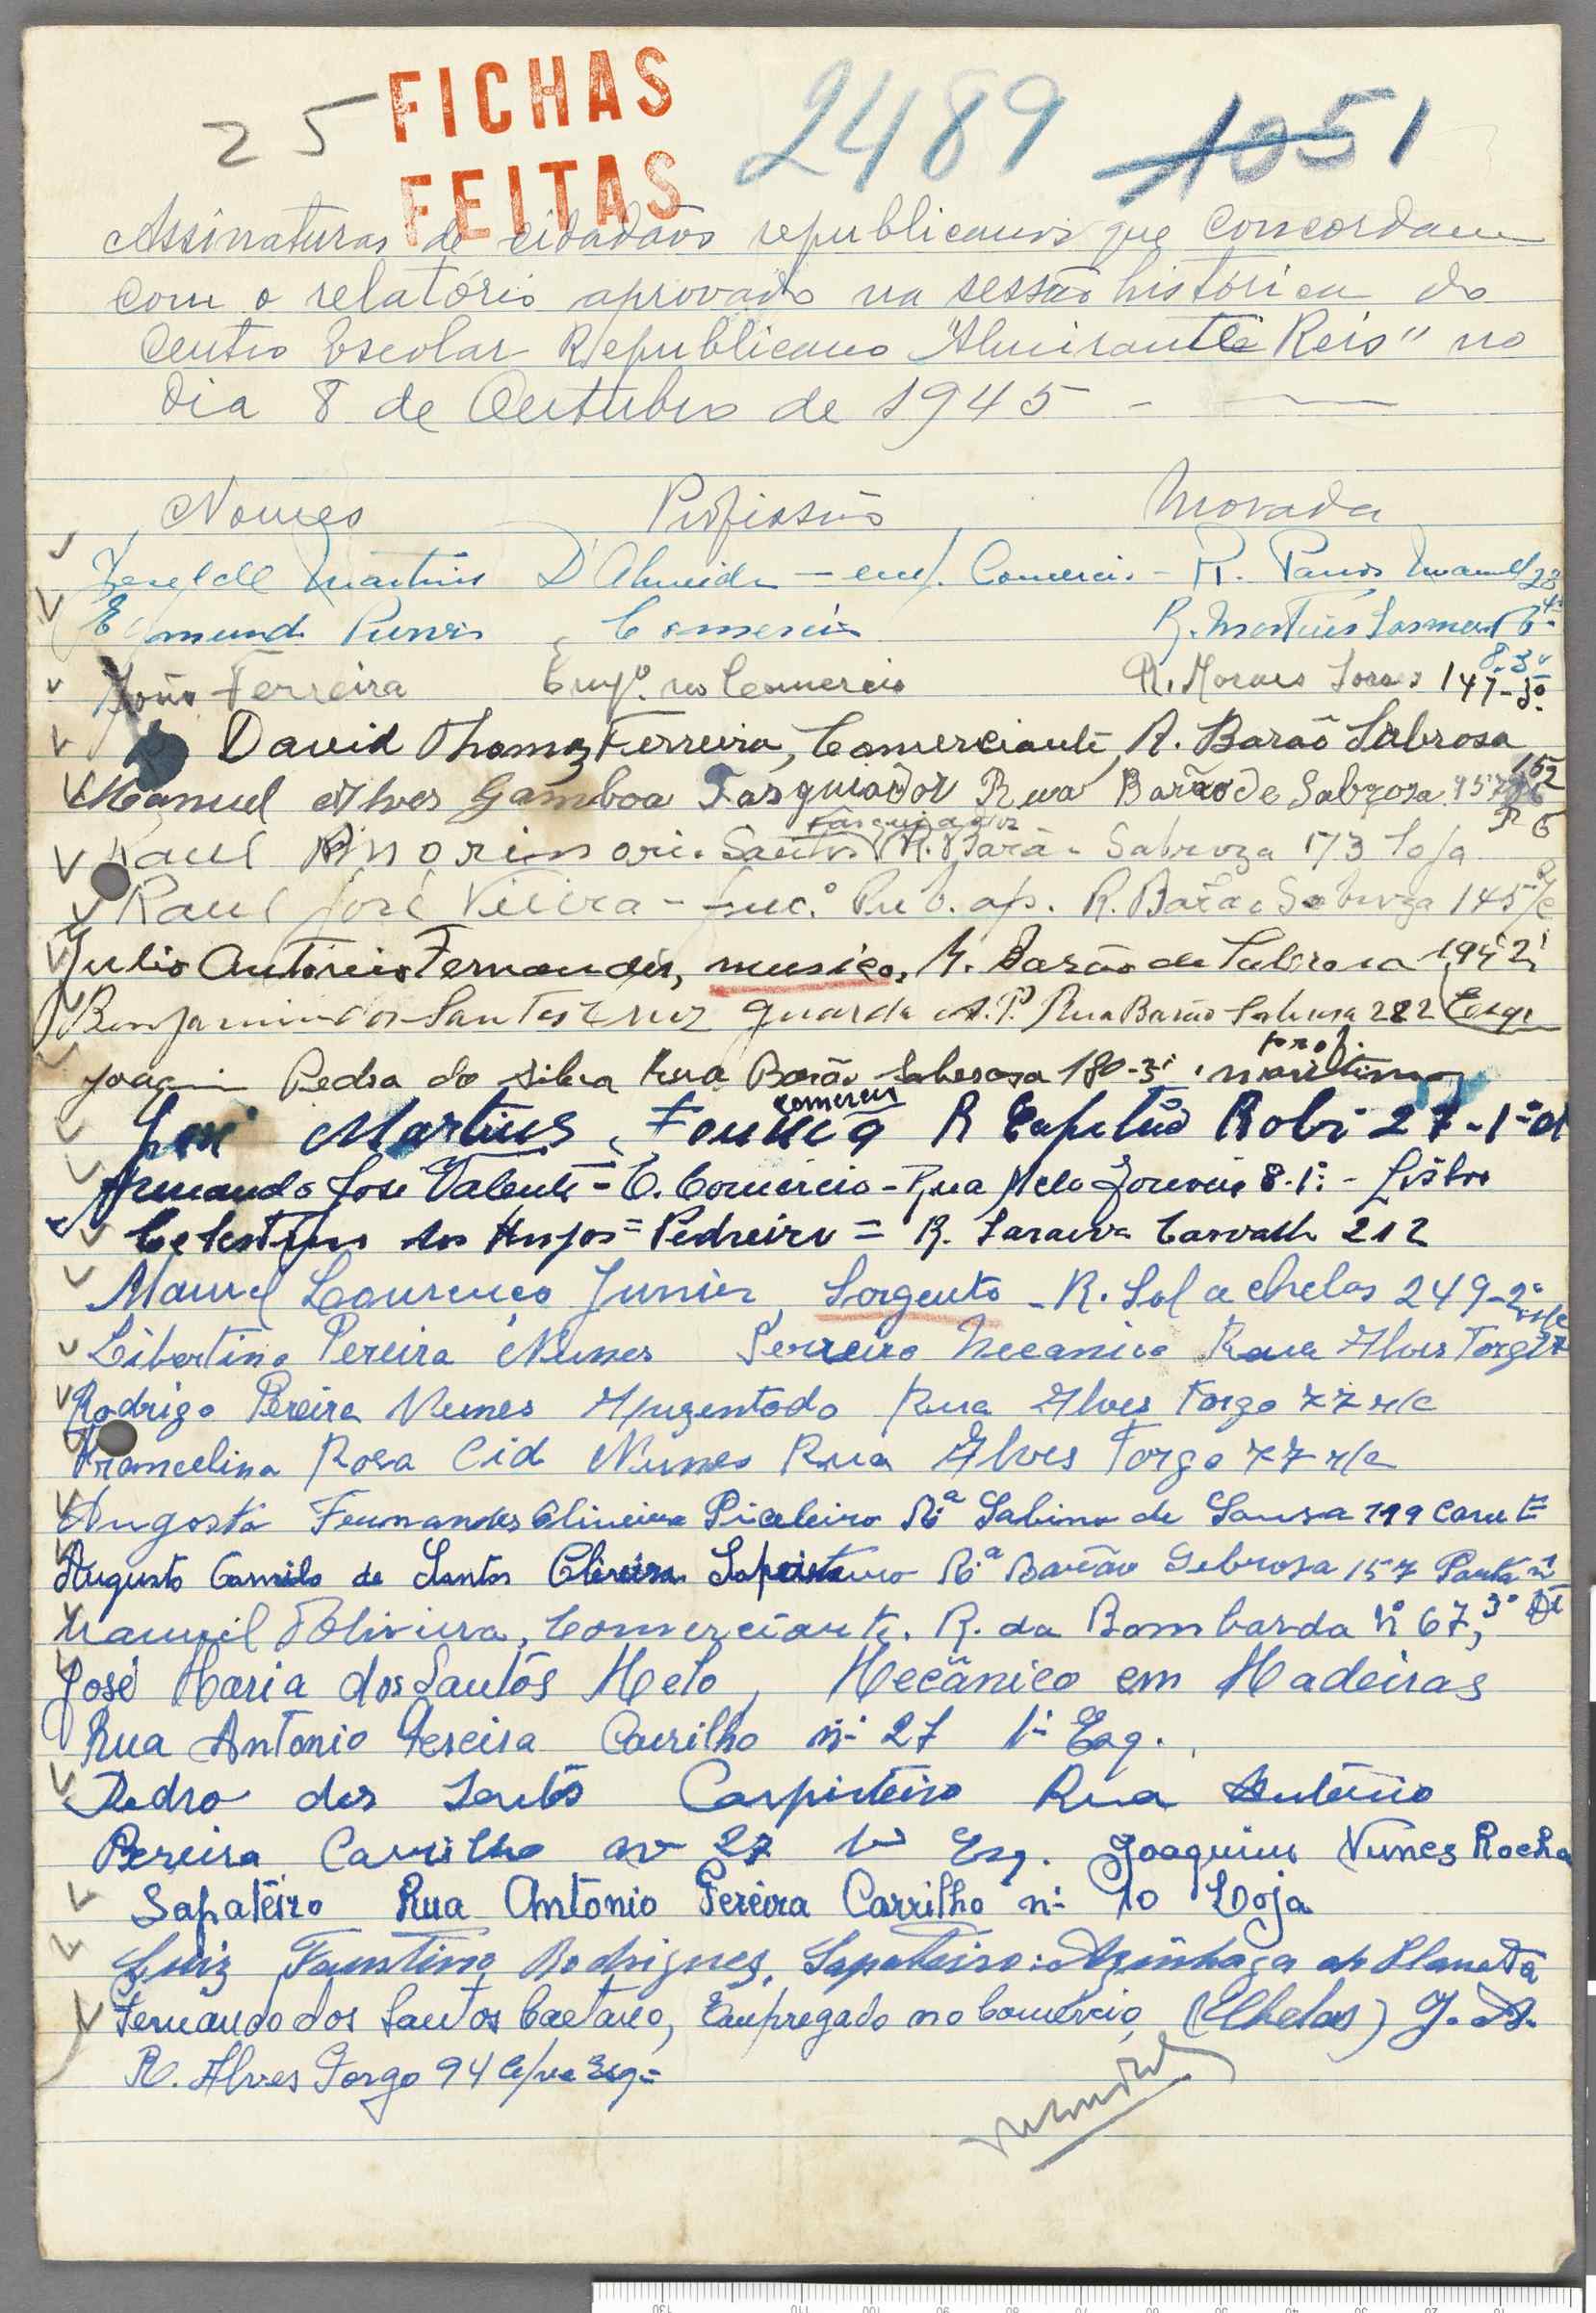 25 FICHAS 2489 1051
FEITAS
Assinaturas de cidadãos republicanos que concordam
com o relatório aprovado na sessão histórica do
Centro Escolar Republicano "Almirante Reis" no
dia 8 de Outubro de 1945 -
Nomes Profissão Morada
Martins D'Almeida - emp. Comercio - R. Manuel 23
4º
Edmundo Comercio R. Martins Sarmento 6
8-3º
João Ferreira Empº. no Comercio R. Moraes Soares 147-3º
David Thomaz Ferreira, Comerciante, R. Barão Sabrosa
152
Manuel Alves Gamboa Fasquiador Rua Barão de Sabrosa 157
Fasquiador
Raul Amorim Santos R. Barão Sabroza 173 loja
Raul José Vieira - Func.º Pub. ap. R. Barão Sabroza 145 r/c
Julio Antonio Fernandes, musico, R. Barão de Sabrosa 194 2º
Benjamim dos Santos Cruz guarda A.P. Rua Barão Sabrosa 282 Esqº
prof.
Joaquim Pedro da Silva Rua Barão Saberosa 180-3º, maritimo
comercio
José Martins, R Capitão Robi 27-1º d
Armando José Valente = E. Comercio - Rua Melo Gouveia 8-1º - Lisboa
Celestino dos Anjos = Pedreiro = R. Saraiva Carvalho 212
Manuel Lourenço Junior, Sargento - R. Sol a Chelas 249-2º
r/c
Libertino Pereira Nunes Serreiro Mecanico Rua Alves Torgo 77
Rodrigo Pereira Nunes Apuzentado Rua Alves Torgo 77 r/c
Francelina Rosa Cid Nunes Rua Alves Torgo 77 r/c
Augosta Fernandes Oliveira Rª Sabino de Sousa 119 cave E
Augusto Camilo de Santos Oliveira Rª Barão Sebrosa 157 Porta nº
Manuel d'Oliveira, Comerciante. R. da Bombarda nº 67, 3º Dt
José Maria dos Santos Melo, Mecânico em Madeiras
Rua Antonio Pereira Carrilho nº 27 1º Esq.
Pedro dos Santos Carpinteiro Rua António
Pereira Carrilho nº 27 1º Esq. Joaquim Nunes Rocha
Sapateiro Rua Antonio Pereira Carrilho nº 10 Loja
Luiz Faustino Rodrigues, Sapateiro: Azinhaga do Planeta
Fernando dos Santos Caetano, Empregado no Comércio (Chelas) J. A.
R. Alves Torgo 94 c/ve Esqº